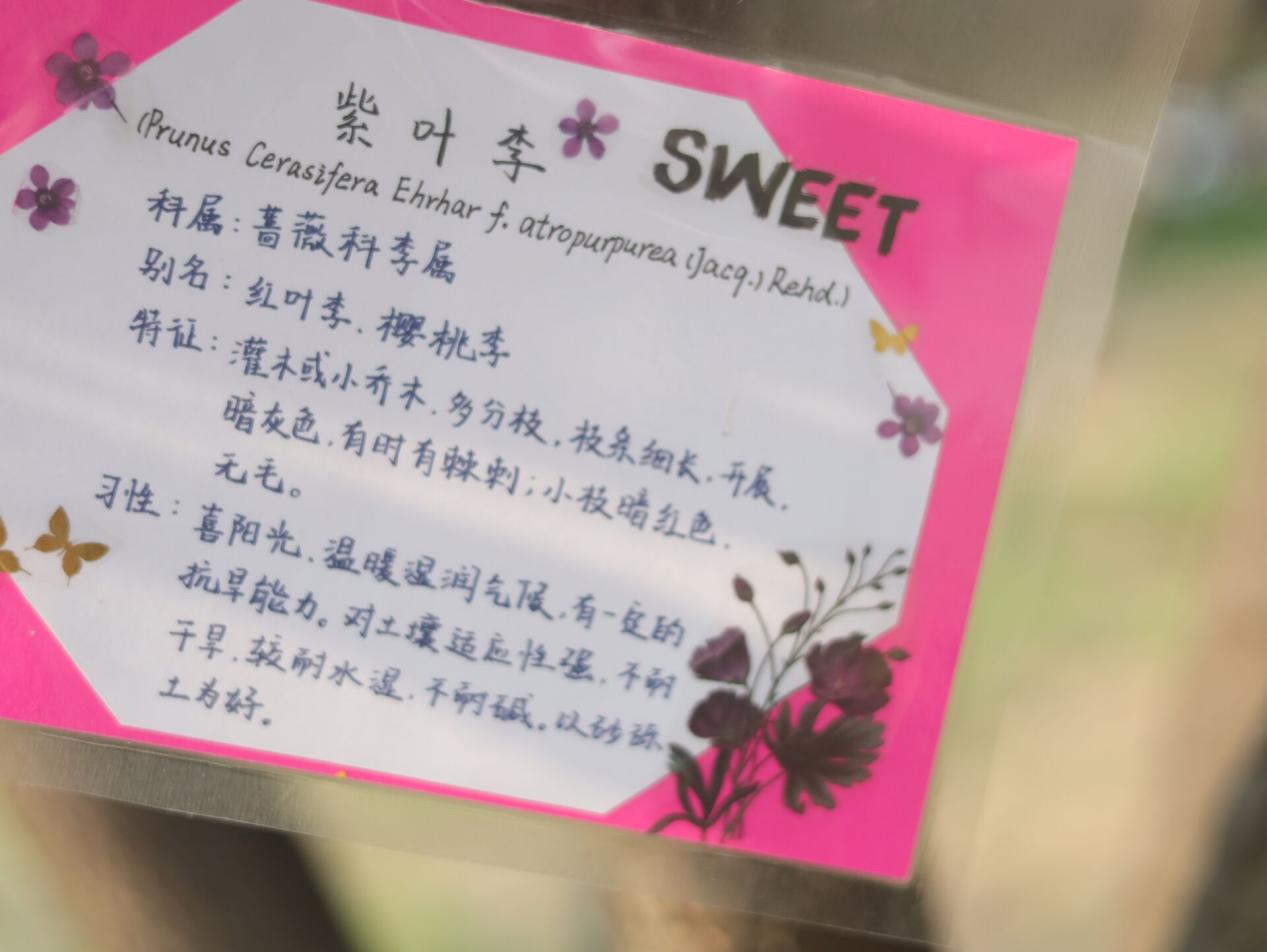 紫叶李 SWEET
(Prunus Cerasifera Ehrhar f. atropurpurea (Jacq.) Rehd.)
科属：蔷薇科李属
别名：红叶李、樱桃李
特征：灌木或小乔木，多分枝，枝条细长，开展，
暗灰色，有时有棘刺；小枝暗红色，
无毛。
习性：喜阳光、温暖湿润气候，有一定的
抗旱能力。对土壤适应性强，不耐
干旱，较耐水湿，不耐碱。以砂砾
土为好。